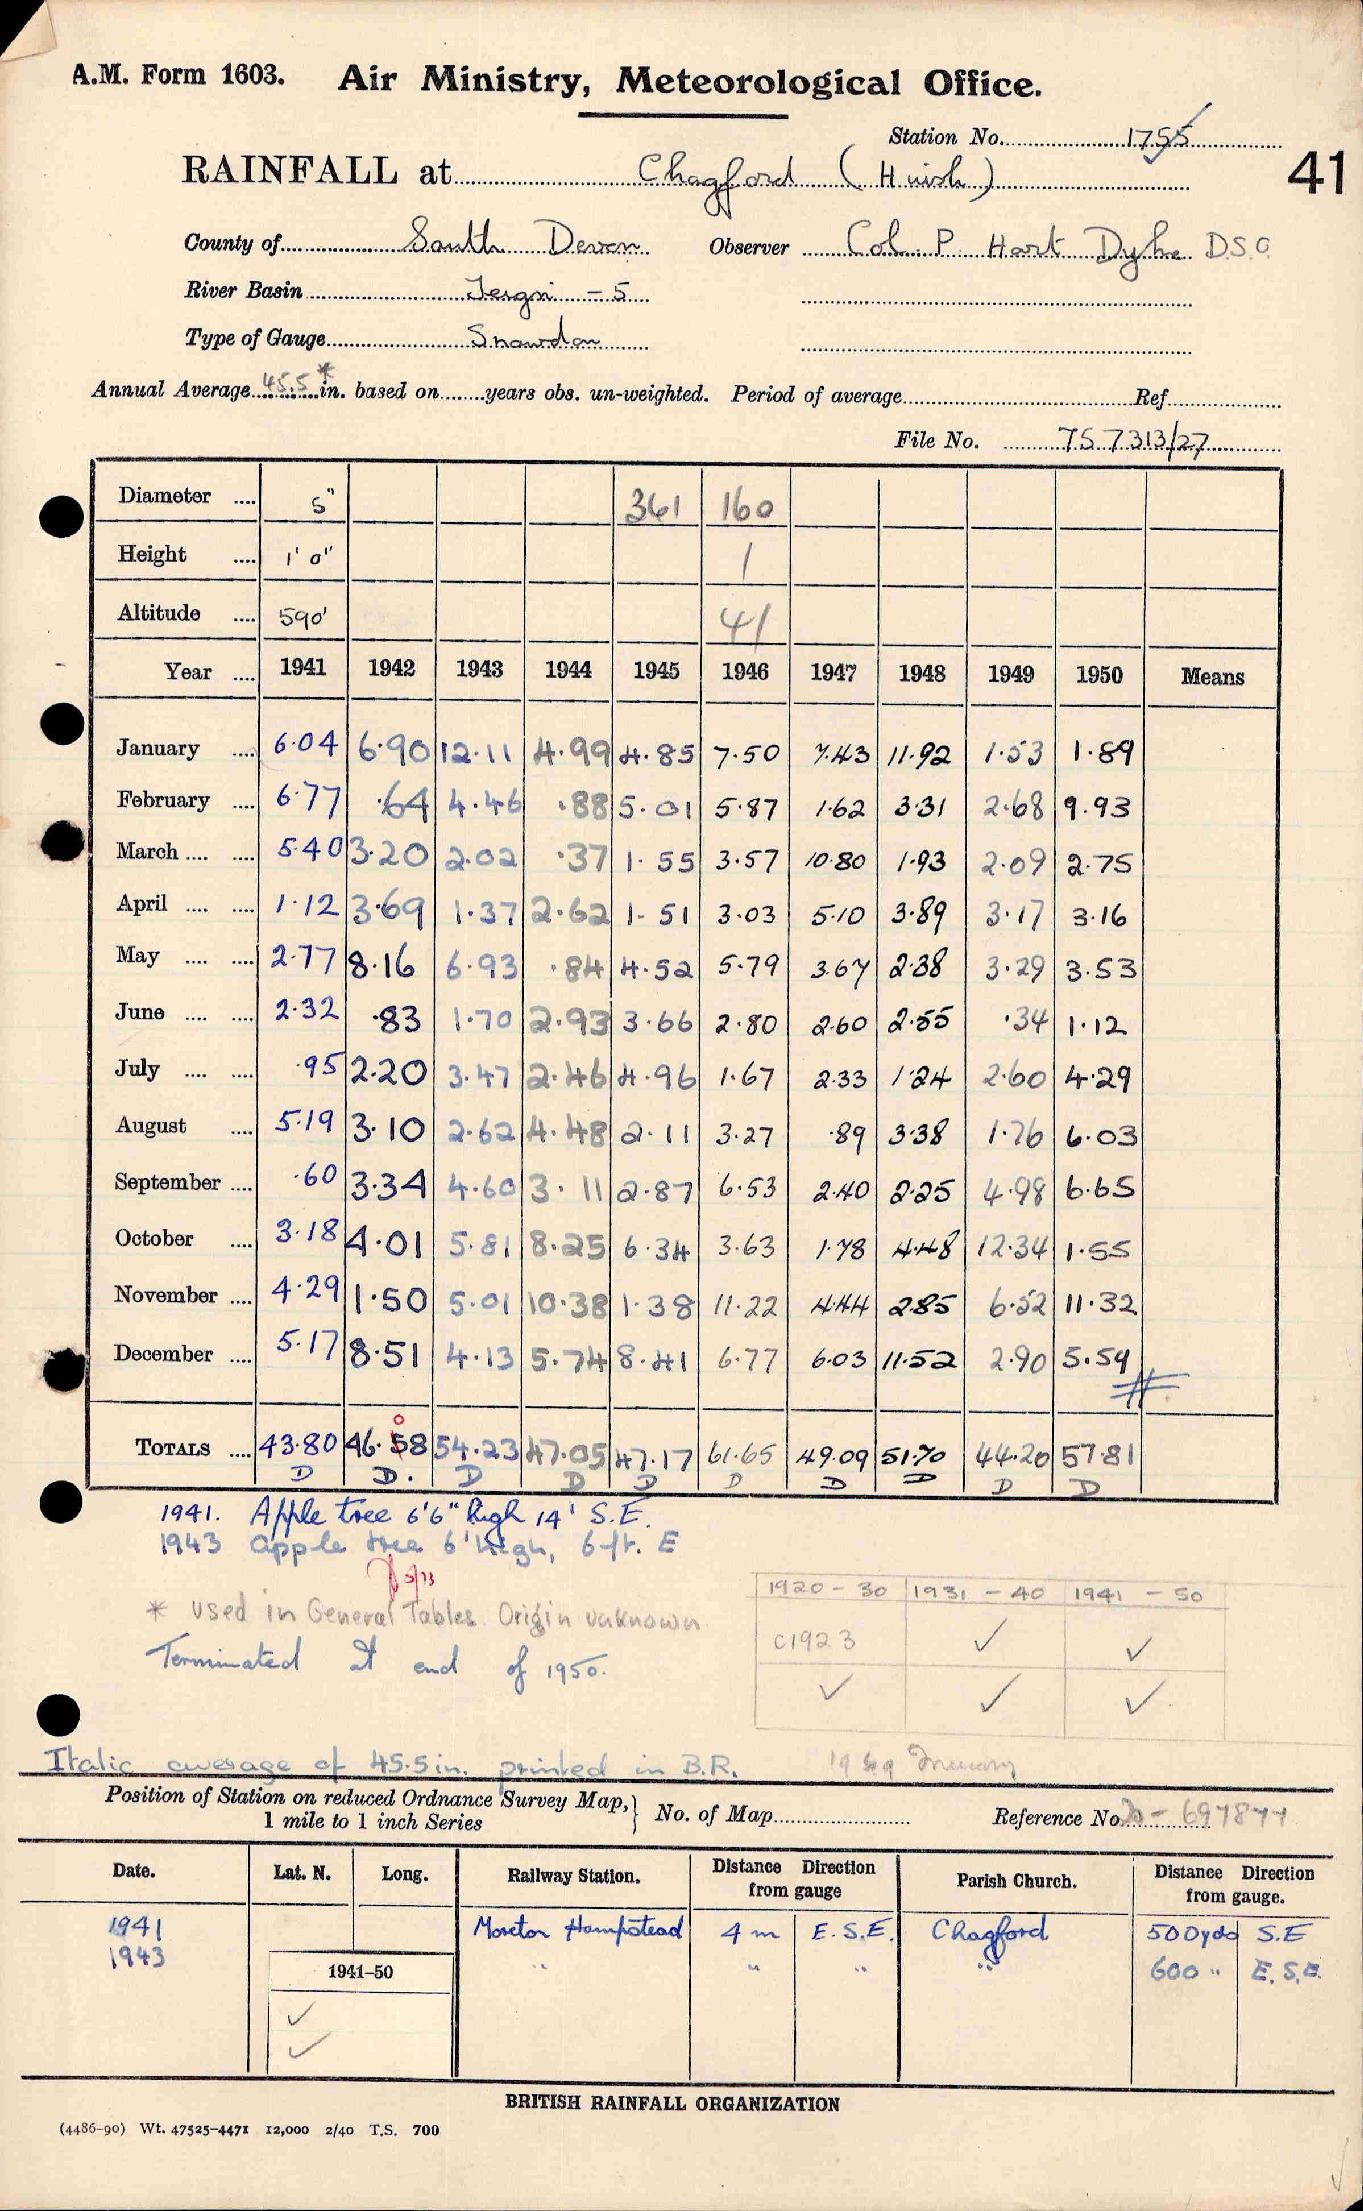 A.M. Form 1603. Air Ministry, Meteorological Office.
Station No. 1755
41
RAINFALL at Chagford (Hurish)
County of South Devon Observer Col. P Hart Dyke D.S.O.
River Basin Teign - 5
Type of Gauge Snowdon
Annual Average 45.5* in. based on years obs. un-weighted. Period of average Ref
File No. 757313/27
Diameter .... 5" 361 160
Height .... 1' 0" 1
Altitude .... 590' 41
Year .... 1941 1942 1943 1944 1945 1946 1947 1948 1949 1950 Means
January .... 6.04 6.90 12.11 4.99 4.85 7.50 7.43 11.92 1.53 1.89
February .... 6.77 .64 4.46 .88 5.01 5.87 1.62 3.31 2.68 9.93
March .... .... 5.40 3.20 2.02 .37 1.55 3.57 10.80 1.93 2.09 2.75
April .... .... 1.12 3.69 1.37 2.62 1.51 3.03 5.10 3.89 3.17 3.16
May .... .... 2.77 8.16 6.93 .84 4.52 5.79 3.67 2.38 3.29 3.53
June .... .... 2.32 .83 1.70 2.93 3.66 2.80 2.60 2.55 .34 1.12
July .... .... .95 2.20 3.47 2.46 4.96 1.67 2.33 1.24 2.60 4.29
August .... 5.19 3.10 2.62 4.48 2.11 3.27 .89 3.38 1.76 6.03
September .... .60 3.34 4.60 3.11 2.87 6.53 2.40 2.25 4.98 6.65
October .... 3.18 4.01 5.81 8.25 6.34 3.63 1.78 4.48 12.34 1.55
November .... 4.29 1.50 5.01 10.38 1.38 11.22 4.44 2.85 6.52 11.32
December .... 5.17 8.51 4.13 5.74 8.41 6.77 6.03 11.52 2.90 5.59
0
TOTALS .... 43.80 46.58 54.23 47.05 47.17 61.65 49.09 51.70 44.20 57.81
D D. D D D D D D D D
1941. Apple tree 6'6" high 14' S.E.
1943 apple tree 6' high, 6 ft. E
5/73
1920-30 1931-40 1941-50
* Used in General Tables. Origin unknown
c1923 ✓ ✓
Terminated at end of 1950.
✓ ✓ ✓
Italic average of 45.5 in. printed in B.R.
Position of Station on reduced Ordnance Survey Map, 1 mile to 1 inch Series } No. of Map Reference No. 697877
Date. Lat. N. Long. Railway Station. Distance Direction from gauge Parish Church. Distance Direction from gauge.
1941 Moreton Hampstead 4 m E.S.E. Chagford 500yds S.E
1943 " " " " 600 " E.S.E.
1941-50
✓
✓
BRITISH RAINFALL ORGANIZATION
(4486-90) Wt. 47525-4471 12,000 2/40 T.S. 700